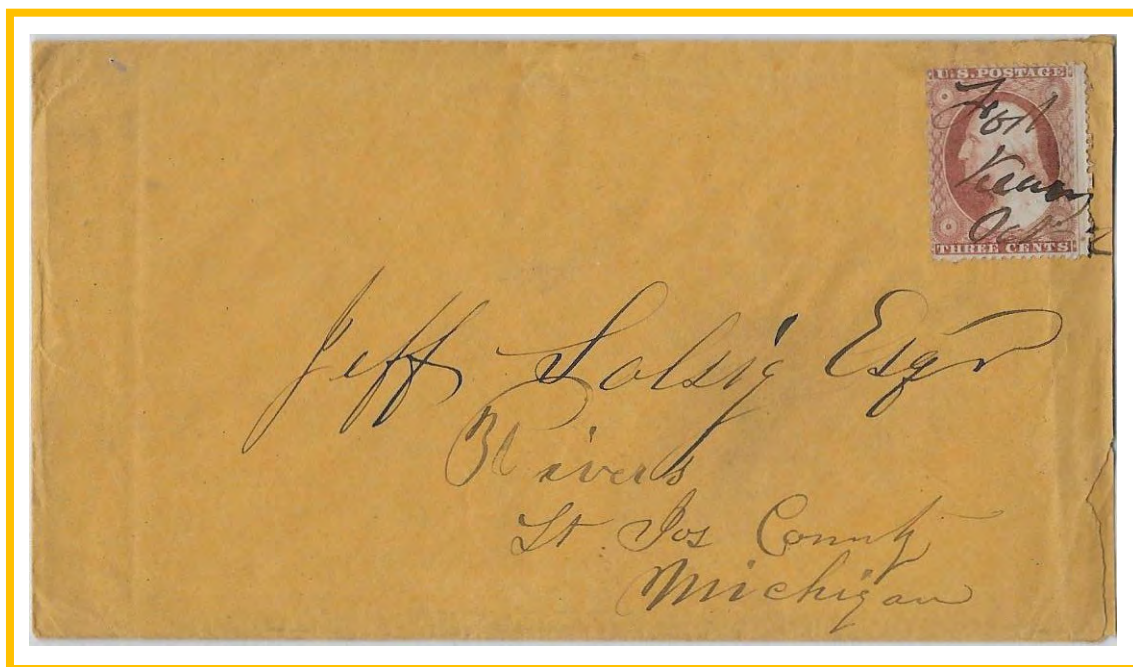 U.S. POSTAGE
Fort
Oct
THREE CENTS
Jeff Salsig Esqr
3 Rivers
St Jos County
Michigan